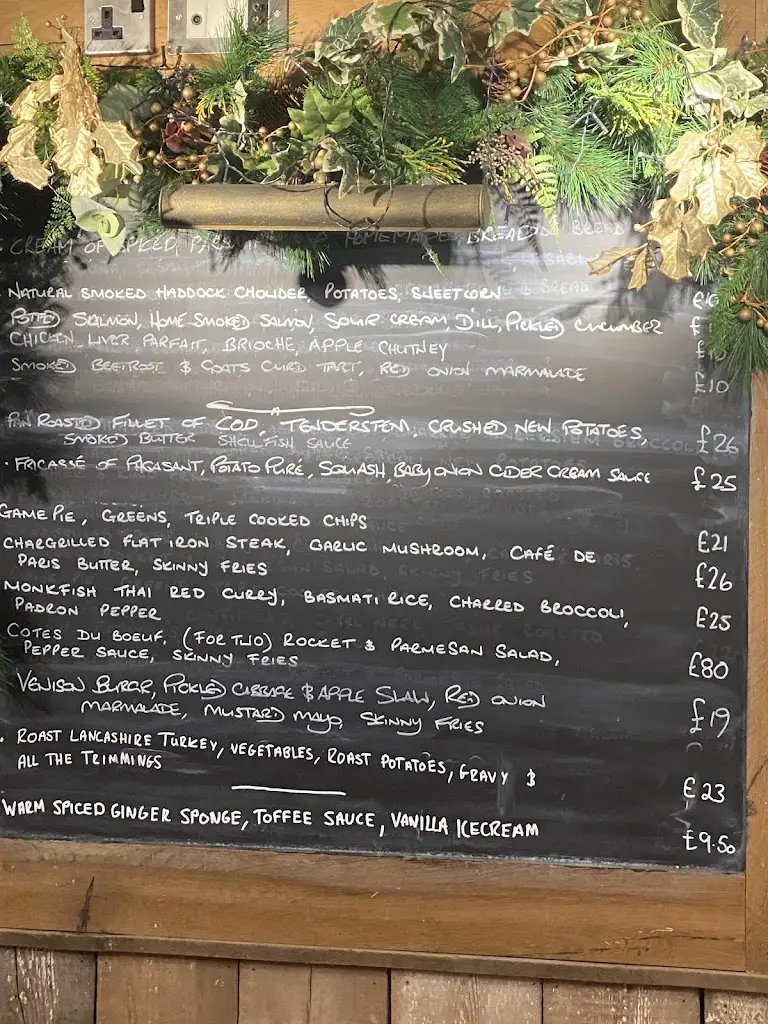 CREAM OF SPICED HOMEMADE BREAD
NATURAL SMOKED HADDOCK CHOWDER, POTATOES, SWEETCORN
POTTED SALMON, HOME SMOKED SALMON, SOUR CREAM, DILL, PICKLED CUCUMBER £
CHICKEN LIVER PARFAIT, BRIOCHE, APPLE CHUTNEY
SMOKED BEETROOT & GOATS CURD TART, RED ONION MARMALADE £10
PAN ROASTED FILLET OF COD, TENDERSTEM, CRUSHED NEW POTATOES, £26
SMOKED BUTTER SHELLFISH SAUCE
· FRICASSÉ OF PHGASANT, POTATO PURÉ, SQUASH, BABY ONION CIDER CREAM SAUCE £25
GAME PIE, GREENS, TRIPLE COOKED CHIPS £21
CHARGRILLED FLAT IRON STEAK, GARLIC MUSHROOM, CAFÉ DE
PARIS BUTTER, SKINNY FRIES £26
MONKFISH THAI RED CURRY, BASMATI RICE, CHARRED BROCCOLI, £25
PADRON PEPPER
COTES DU BOEUF, (FOR TWO) ROCKET & PARMESAN SALAD, £80
PEPPER SAUCE, SKINNY FRIES
VENISON BURGR, PICKLED CABBAGE & APPLE SLAW, RED ONION £19
MARMALADE, MUSTARD MAYO, SKINNY FRIES
. ROAST LANCASHIRE TURKEY, VEGETABLES, ROAST POTATOES, GRAVY & £23
ALL THE TRIMMINGS
WARM SPICED GINGER SPONGE, TOFFEE SAUCE, VANILLA ICECREAM £9.50